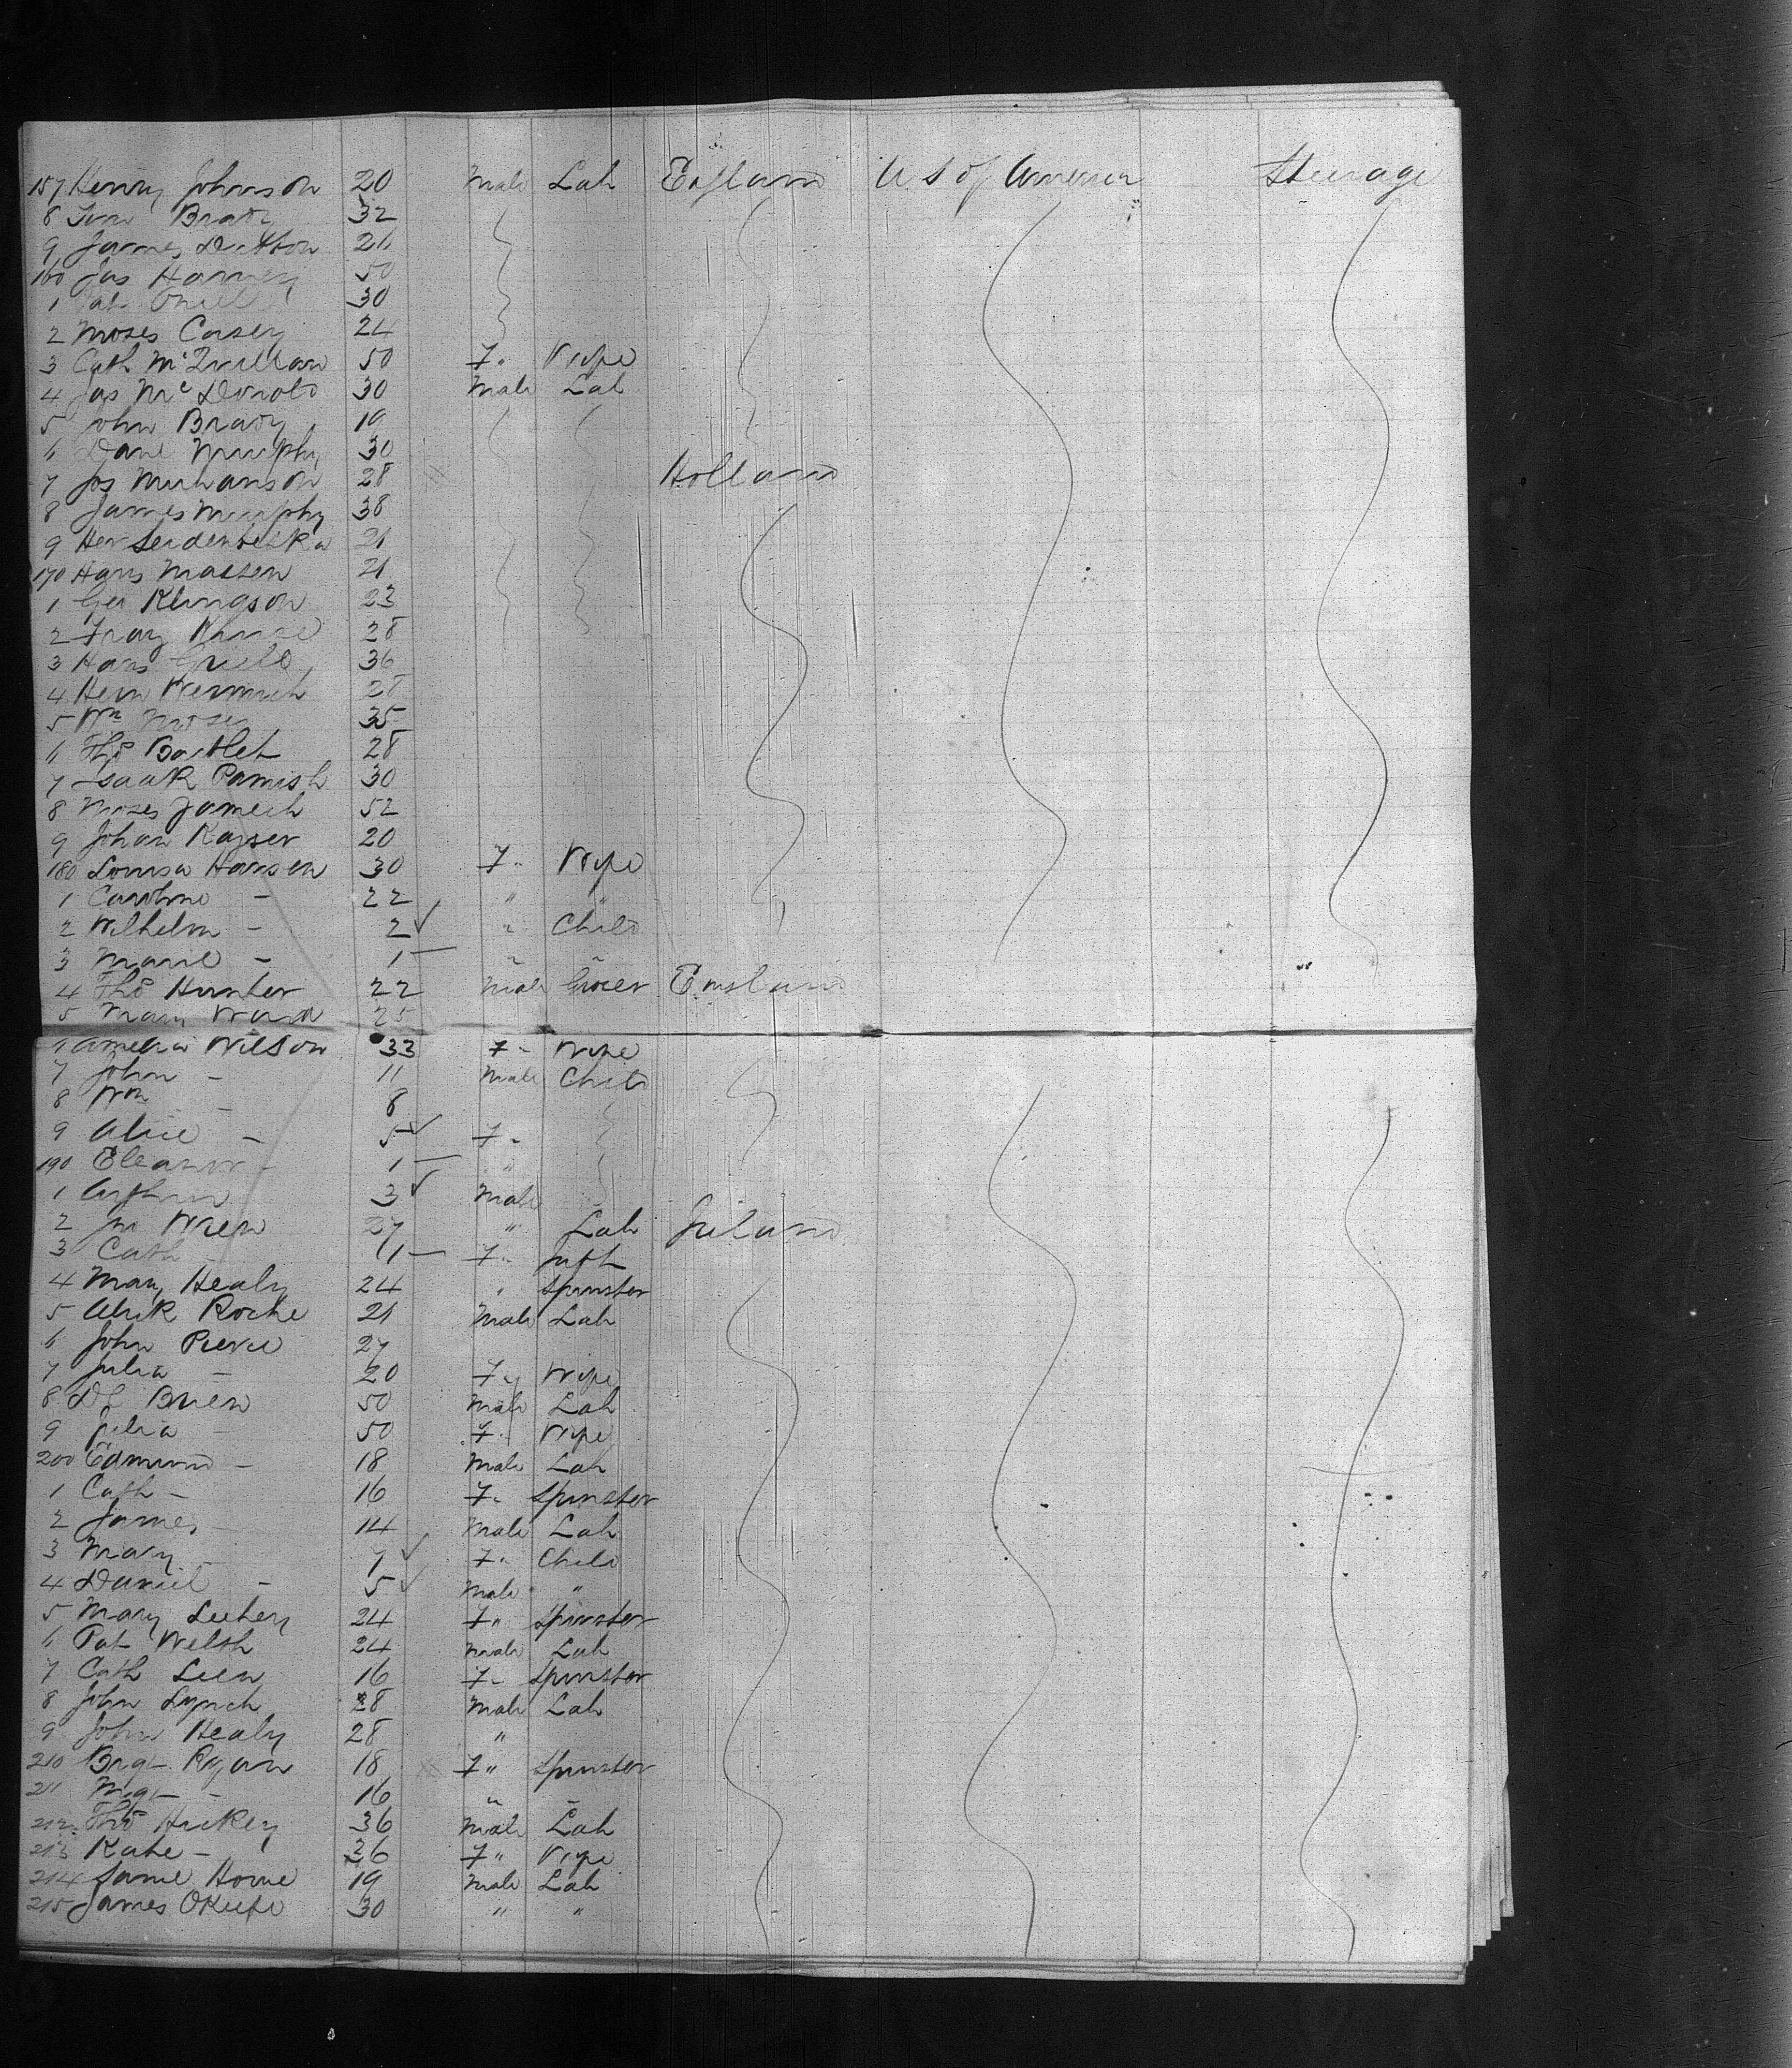 157 Henry Johnson 20 Male Lab England U S of America Steerage
8 Brady 32
9 James Dutton 21
160 Jas Harney 50
1 Pat Oneil 30
2 Moses Casey 24
3 Cath McQuillan 50 F" Wife
4 Jas McDonald 30 Male Lab
5 John Brady 19
6 Danl Murphy 30
7 Jos 28 Holland
8 James Murphy 38
9 21
170 Hans Madsen 21
1 Klingson 23
2 Franz 28
3 Hans 36
4 Hein 28
5 Wm Moser 35
6 Tho Bartlet 28
7 Isaak 30
8 Moses 52
9 Johan Kayser 20
180 Louisa Hansen 30 F" Wife
1 Caroline - 22 " "
2 Wilhelm - 2 " Child
3 Marie - 1 " "
4 Tho Hunter 22 Male Grocer England
5 Mary Ward 25
6 Amelia Wilson 33 F" Wife
7 John - 11 Male Child
8 Wm - 8
9 Alice - 5 F"
190 Eleanor - 1 "
1 Arthur 3 Male
2 Jno Wren 27 " Lab Ireland
3 Cath - 11 F" Inft
4 Mary Healy 24 " Spinster
5 Roche 21 Male Lab
6 John Pierce 27
7 Julia - 20 F" Wife
8 Dl Brien 50 Male Lab
9 Julia - 50 F" Wife
200 Edmund - 18 Male Lab
1 Cath - 16 F" Spinster
2 James - 14 Male Lab
3 Mary - 7 F" Child
4 Daniel - 5 Male "
5 Mary 24 F" Spinster
6 Pat Welsh 24 Male Lab
7 Cath Leen 16 F" Spinster
8 John Lynch 28 Male Lab
9 John Healy 28 "
210 Brgt Ryan 18 F" Spinster
211 Mgt - 16 " "
212 Tho Hickey 36 Male Lab
213 Kate - 36 F" Wife
214 Horne 19 Male Lab
215 James OKeefe 30 " "